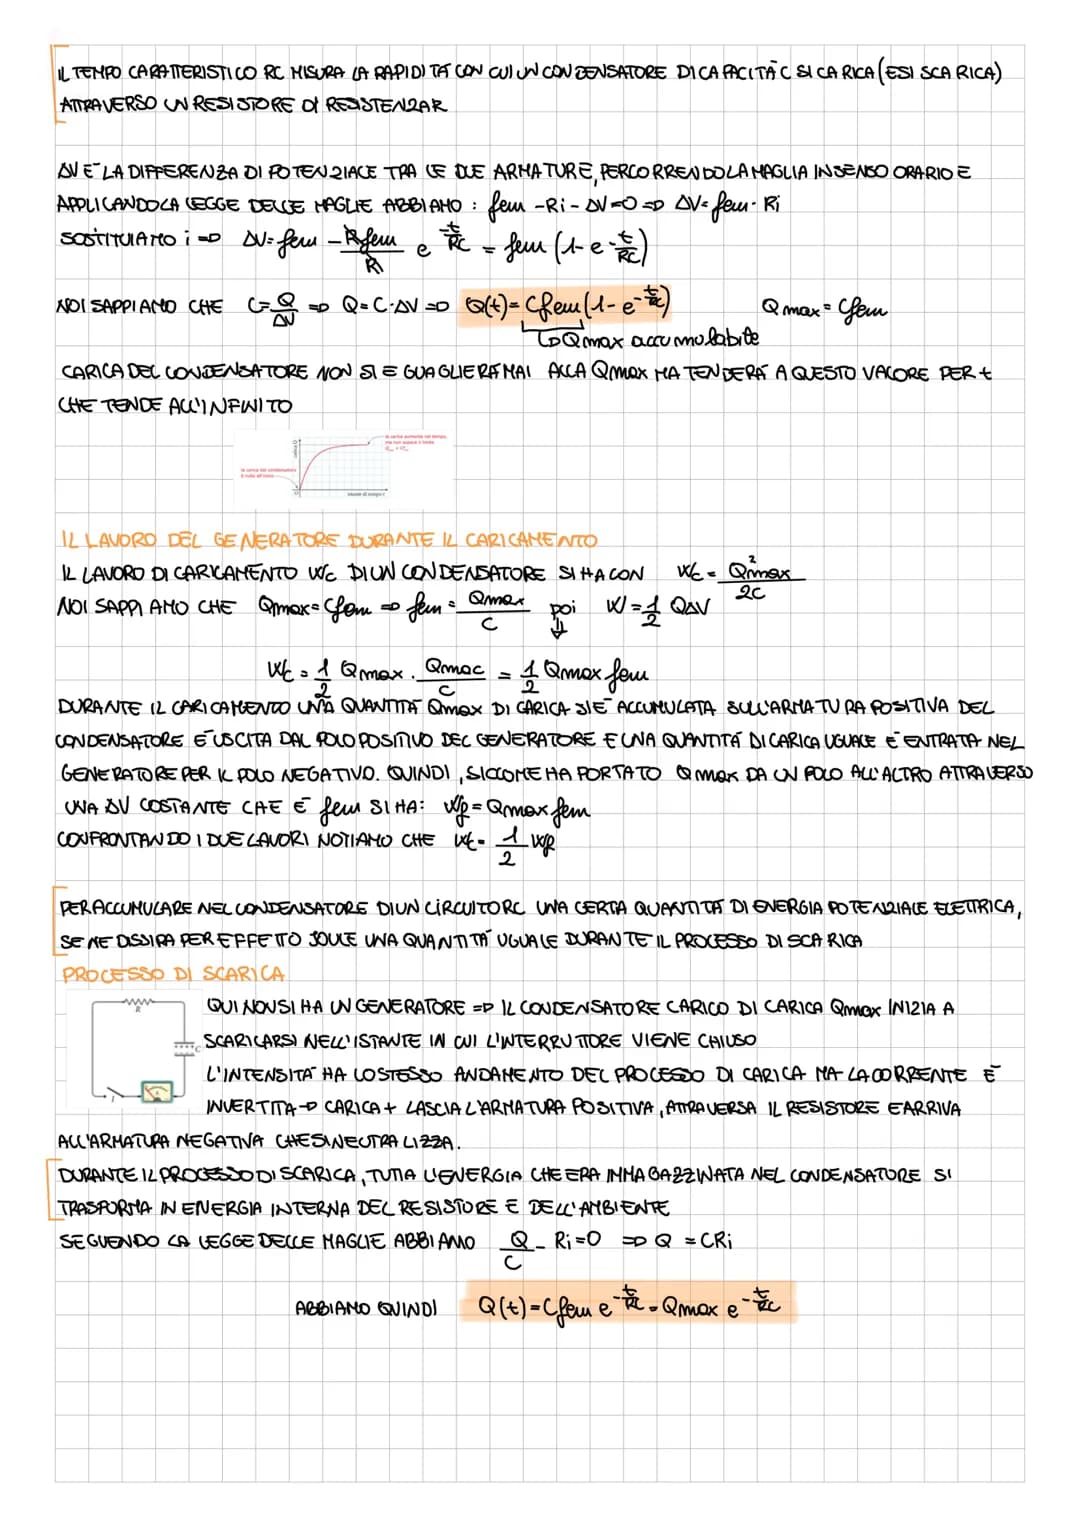 IL TEMPO CARATTERISTICO RC MISURA LA RAPIDITÀ CON CUI UN CONDENSATORE DI CAPACITÀ C SI CARICA (E SI SCARICA)
ATTRAVERSO UN RESISTORE DI RESISTENZA R
ΔV È LA DIFFERENZA DI POTENZIALE TRA LE DUE ARMATURE, PERCORRENDO LA MAGLIA IN SENSO ORARIO E
APPLICANDO LA LEGGE DELLE MAGLIE ABBIAMO : fem - Ri - ΔV = 0 => ΔV = fem - Ri
SOSTITUIAMO i => ΔV = fem - R fem/R e^-t/RC = fem (1 - e^-t/RC)
NOI SAPPIAMO CHE C = Q/ΔV => Q = C·ΔV => Q(t) = C fem (1 - e^-t/RC) Qmax = C fem
↳ Qmax accumulabile
CARICA DEL CONDENSATORE NON SI EGUAGLIERÀ MAI ALLA Qmax MA TENDERÀ A QUESTO VALORE PER t
CHE TENDE ALL'INFINITO
la carica aumenta nel tempo
ma non supera il limite
la carica del condensatore
è nulla all'inizio
carica Q
istante di tempo t
IL LAVORO DEL GENERATORE DURANTE IL CARICAMENTO
IL LAVORO DI CARICAMENTO Wc DI UN CONDENSATORE SI HA CON Wc = Q²max/2C
NOI SAPPIAMO CHE Qmax = C fem => fem = Qmax/C poi W = 1/2 QΔV
⇓
Wc = 1/2 Qmax · Qmac/C = 1/2 Qmax fem
DURANTE IL CARICAMENTO UNA QUANTITÀ Qmax DI CARICA SI È ACCUMULATA SULL'ARMATURA POSITIVA DEL
CONDENSATORE È USCITA DAL POLO POSITIVO DEL GENERATORE E UNA QUANTITÀ DI CARICA UGUALE È ENTRATA NEL
GENERATORE PER IL POLO NEGATIVO. QUINDI, SICCOME HA PORTATO Qmax DA UN POLO ALL'ALTRO ATTRAVERSO
UNA ΔV COSTANTE CHE È fem SI HA: Wp = Qmax fem
CONFRONTANDO I DUE LAVORI NOTIAMO CHE Wc = 1/2 Wp
PER ACCUMULARE NEL CONDENSATORE DI UN CIRCUITO RC UNA CERTA QUANTITÀ DI ENERGIA POTENZIALE ELETTRICA,
SE NE DISSIPA PER EFFETTO JOULE UNA QUANTITÀ UGUALE DURANTE IL PROCESSO DI SCARICA
PROCESSO DI SCARICA
R
C
QUI NON SI HA UN GENERATORE => IL CONDENSATORE CARICO DI CARICA Qmax INIZIA A
SCARICARSI NELL'ISTANTE IN CUI L'INTERRUTTORE VIENE CHIUSO
L'INTENSITÀ HA LO STESSO ANDAMENTO DEL PROCESSO DI CARICA MA LA CORRENTE È
INVERTITA → CARICA + LASCIA L'ARMATURA POSITIVA, ATTRAVERSA IL RESISTORE E ARRIVA
ALL'ARMATURA NEGATIVA CHE SI NEUTRALIZZA.
DURANTE IL PROCESSO DI SCARICA, TUTTA L'ENERGIA CHE ERA IMMAGAZZINATA NEL CONDENSATORE SI
TRASFORMA IN ENERGIA INTERNA DEL RESISTORE E DELL'AMBIENTE
SEGUENDO LA LEGGE DELLE MAGLIE ABBIAMO Q/C - Ri = 0 => Q = CRi
ABBIAMO QUINDI Q(t) = C fem e^-t/RC = Qmax e^-t/RC